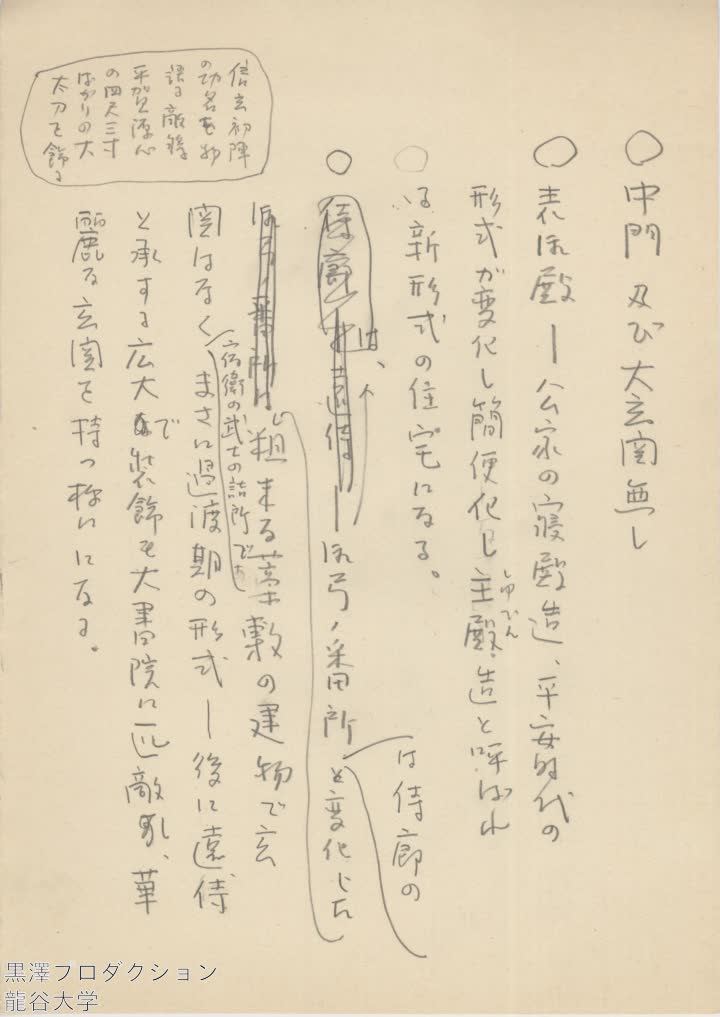 ○ 中門及び大玄関無し
○ 表御殿―公家の寝殿造、平安時代の
形式が変化し簡便化し主殿造と呼ばれ
しゅでん
る新形式の住宅になる。
○ 侍廊は、
御弓ノ番所と変化した
は侍廊の
粗末な藁敷の建物で玄
宿衛の武士の詰所で、
関はなく、まさに過渡期の形式―後に遠侍
と承する広大で装飾も大書院に匹敵し、華
麗な玄関を持つ様になる。
信玄初陣
の功名を物
語る敵将
平賀源心
の四尺三寸
ばかりの大
太刀を飾る
黒澤プロダクション
龍谷大学